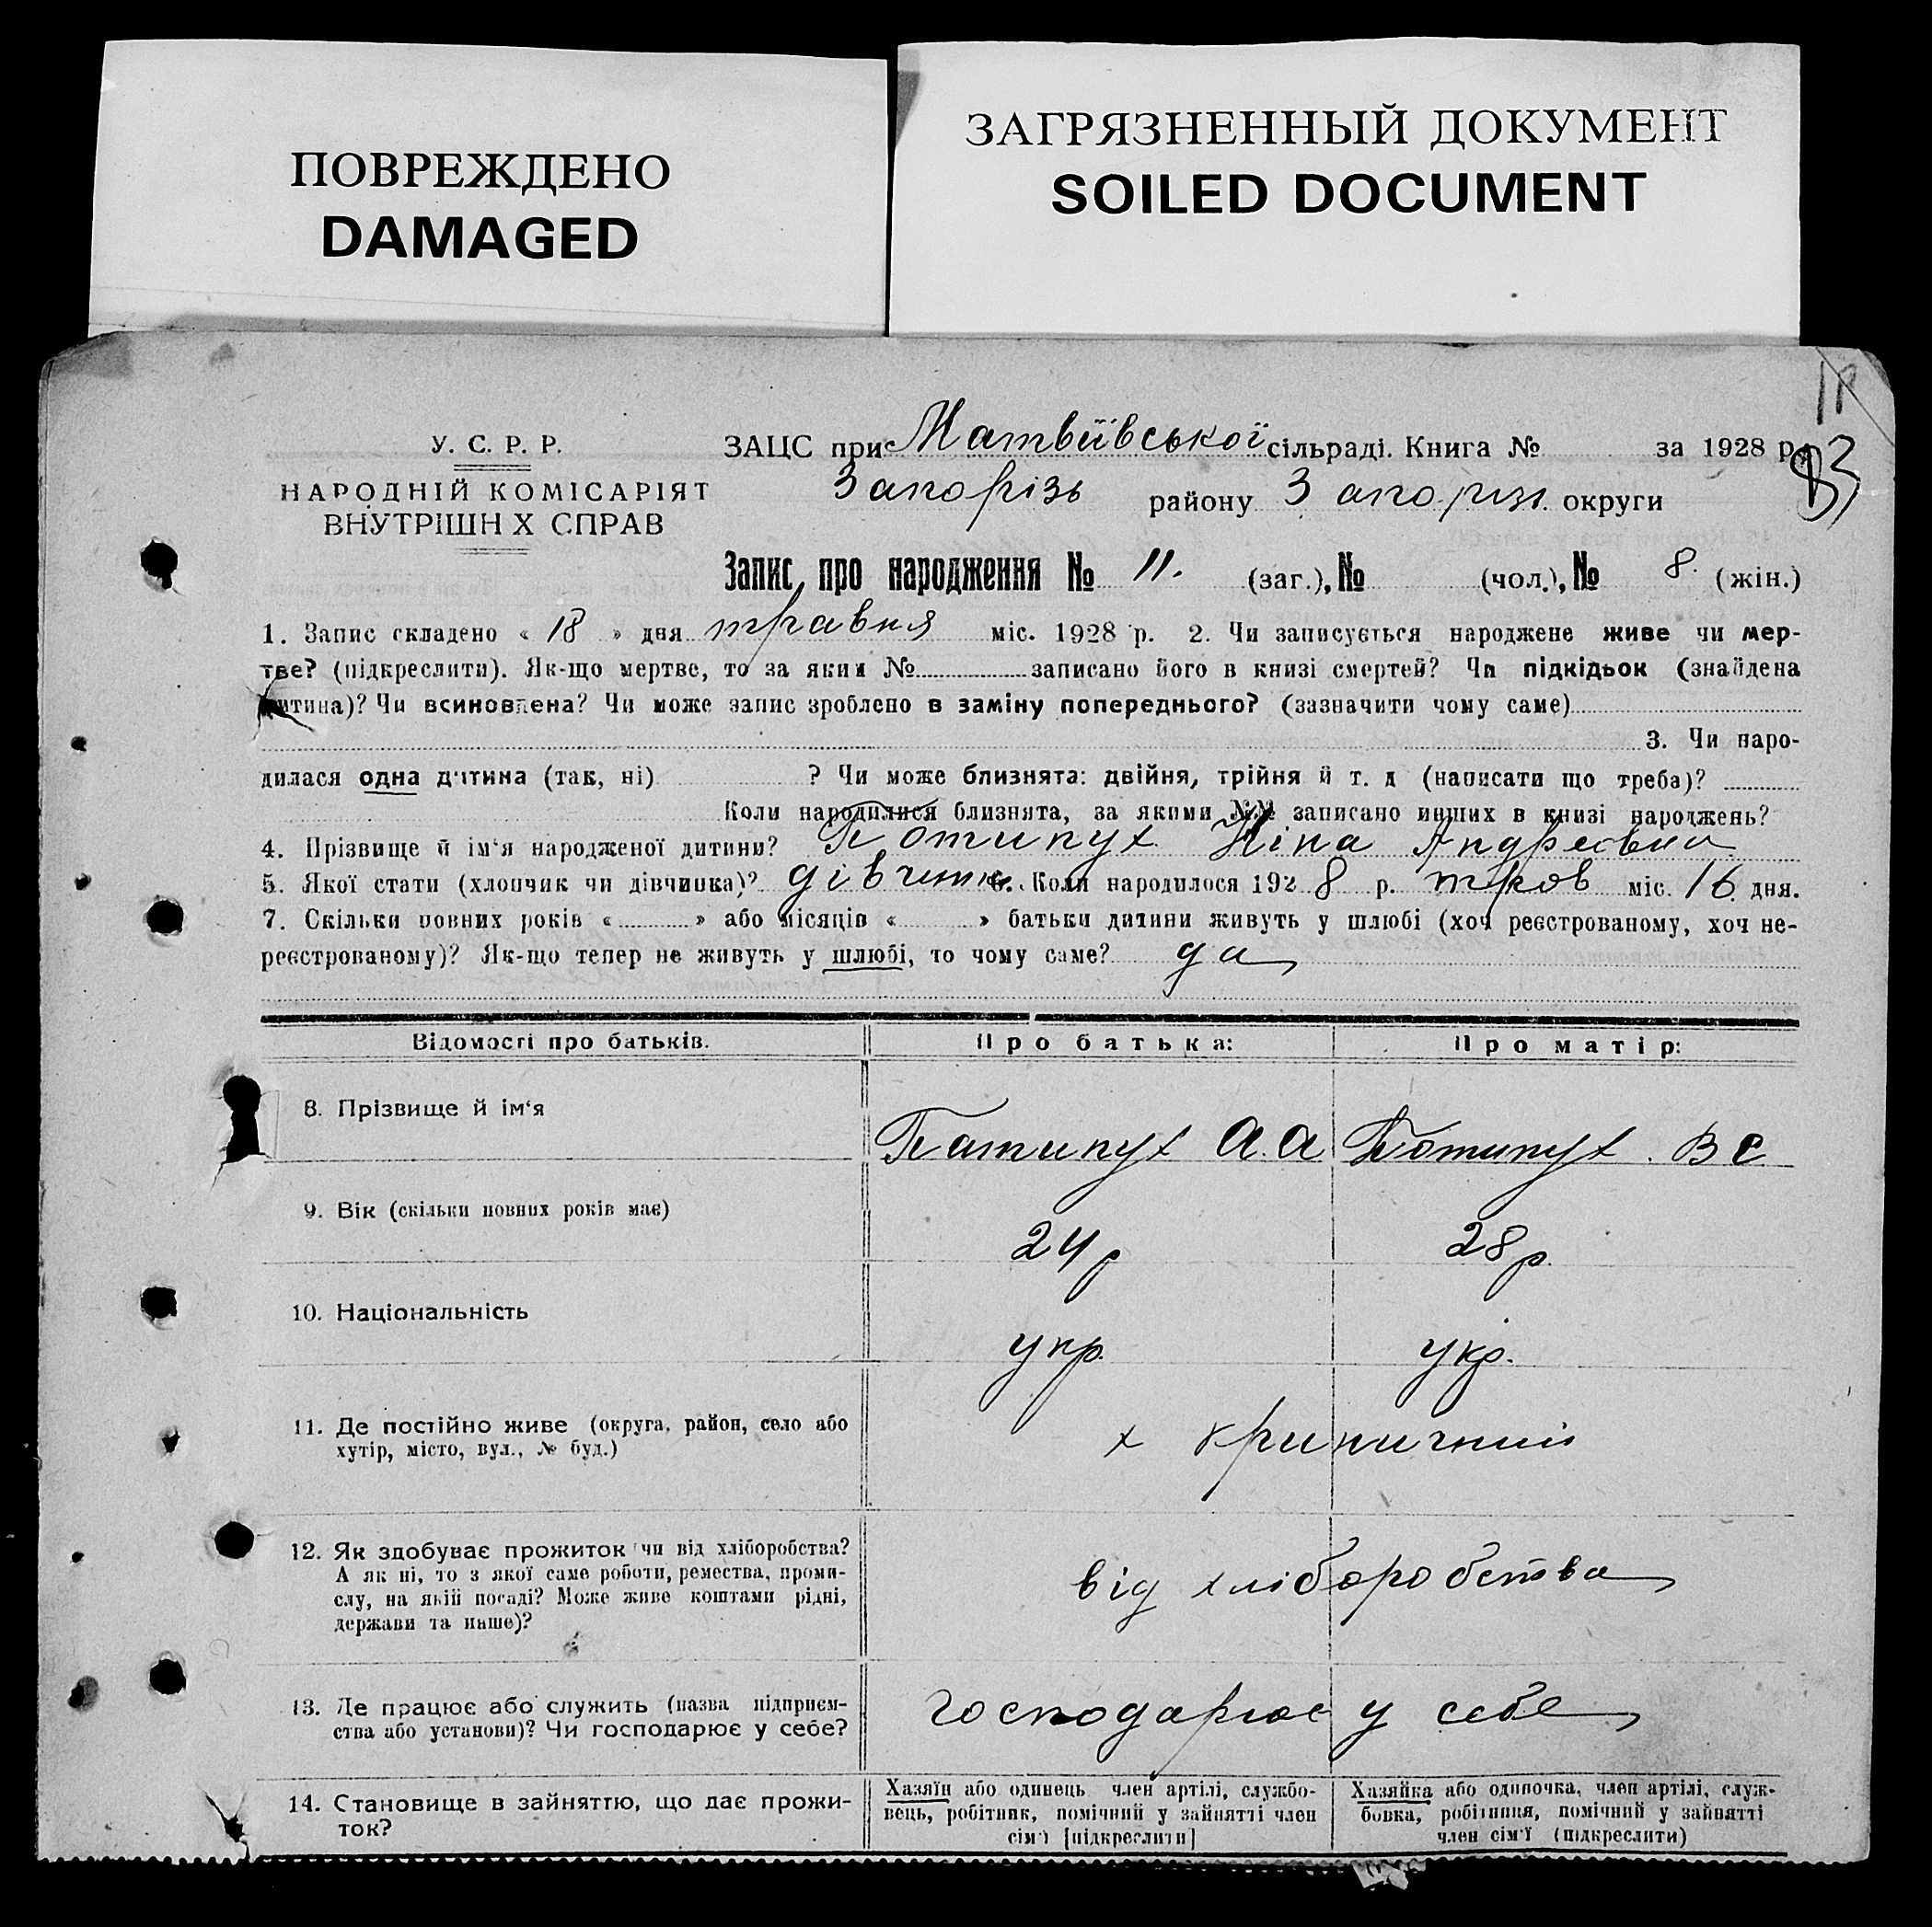 ПОВРЕЖДЕНО
DAMAGED
ЗАГРЯЗНЕННЫЙ ДОКУМЕНТ
SOILED DOCUMENT
У. С. Р. Р.
НАРОДНІЙ КОМІСАРІЯТ
ВНУТРІШН Х СПРАВ
ЗАЦС при Матвіївської сільраді. Книга № за 1928 р.
83
Запорізь району Запоріз. округи
Запис про народження № 11. (заг.), № (чол.), № 8. (жін.)
1. Запис складено « 18 » дня травня міс. 1928 р. 2. Чи записується народжене живе чи мер-
тве? (підкреслити). Як-що мертве, то за яким № записано його в книзі смертей? Чи підкідьок (знайдена
дитина)? Чи всиновлена? Чи може запис зроблено в заміну попереднього? (зазначити чому саме)
3. Чи наро-
дилася одна дитина (так, ні) ? Чи може близнята: двійня, трійня й т. д (написати що треба)?
Коли народилися близнята, за якими №№ записано инших в книзі народжень?
4. Прізвище й ім'я народженої дитини? Потипух Ніна Андреевна
5. Якої стати (хлопчик чи дівчинка)? дівчинк 6. Коли народилося 192 8 р. трав міс. 16 дня.
7. Скільки повних років « » або місяців « » батьки дитини живуть у шлюбі (хоч реєстрованому, хоч не-
реєстрованому)? Як-що тепер не живуть у шлюбі, то чому саме? да
Відомості про батьків. Про батька: Про матір:
8. Прізвище й ім'я
Патипух А. А Потипух. В С
9. Вік (скільки повних років має)
24 р 28 р.
10. Національність
укр. укр.
11. Де постійно живе (округа, район, село або
хутір, місто, вул., № буд.)
х криничний
12. Як здобуває прожиток чи від хліборобства?
А як ні, то з якої саме роботи, ремества, проми-
слу, на якій посаді? Може живе коштами рідні,
держави та инше)?
від хліборобства
13. Де працює або служить (назва підприєм-
ства або установи)? Чи господарює у себе?
господарює у себе
14. Становище в зайняттю, що дає прожи-
ток?
Хазяїн або одинець член артілі, службо-
вець, робітник, помічний у зайнятті член
сім'ї [підкреслити]
Хазяйка або одиночка, член артілі, служ-
бовка, робітниця, помічний у зайнятті
член сім'ї (підкреслити)